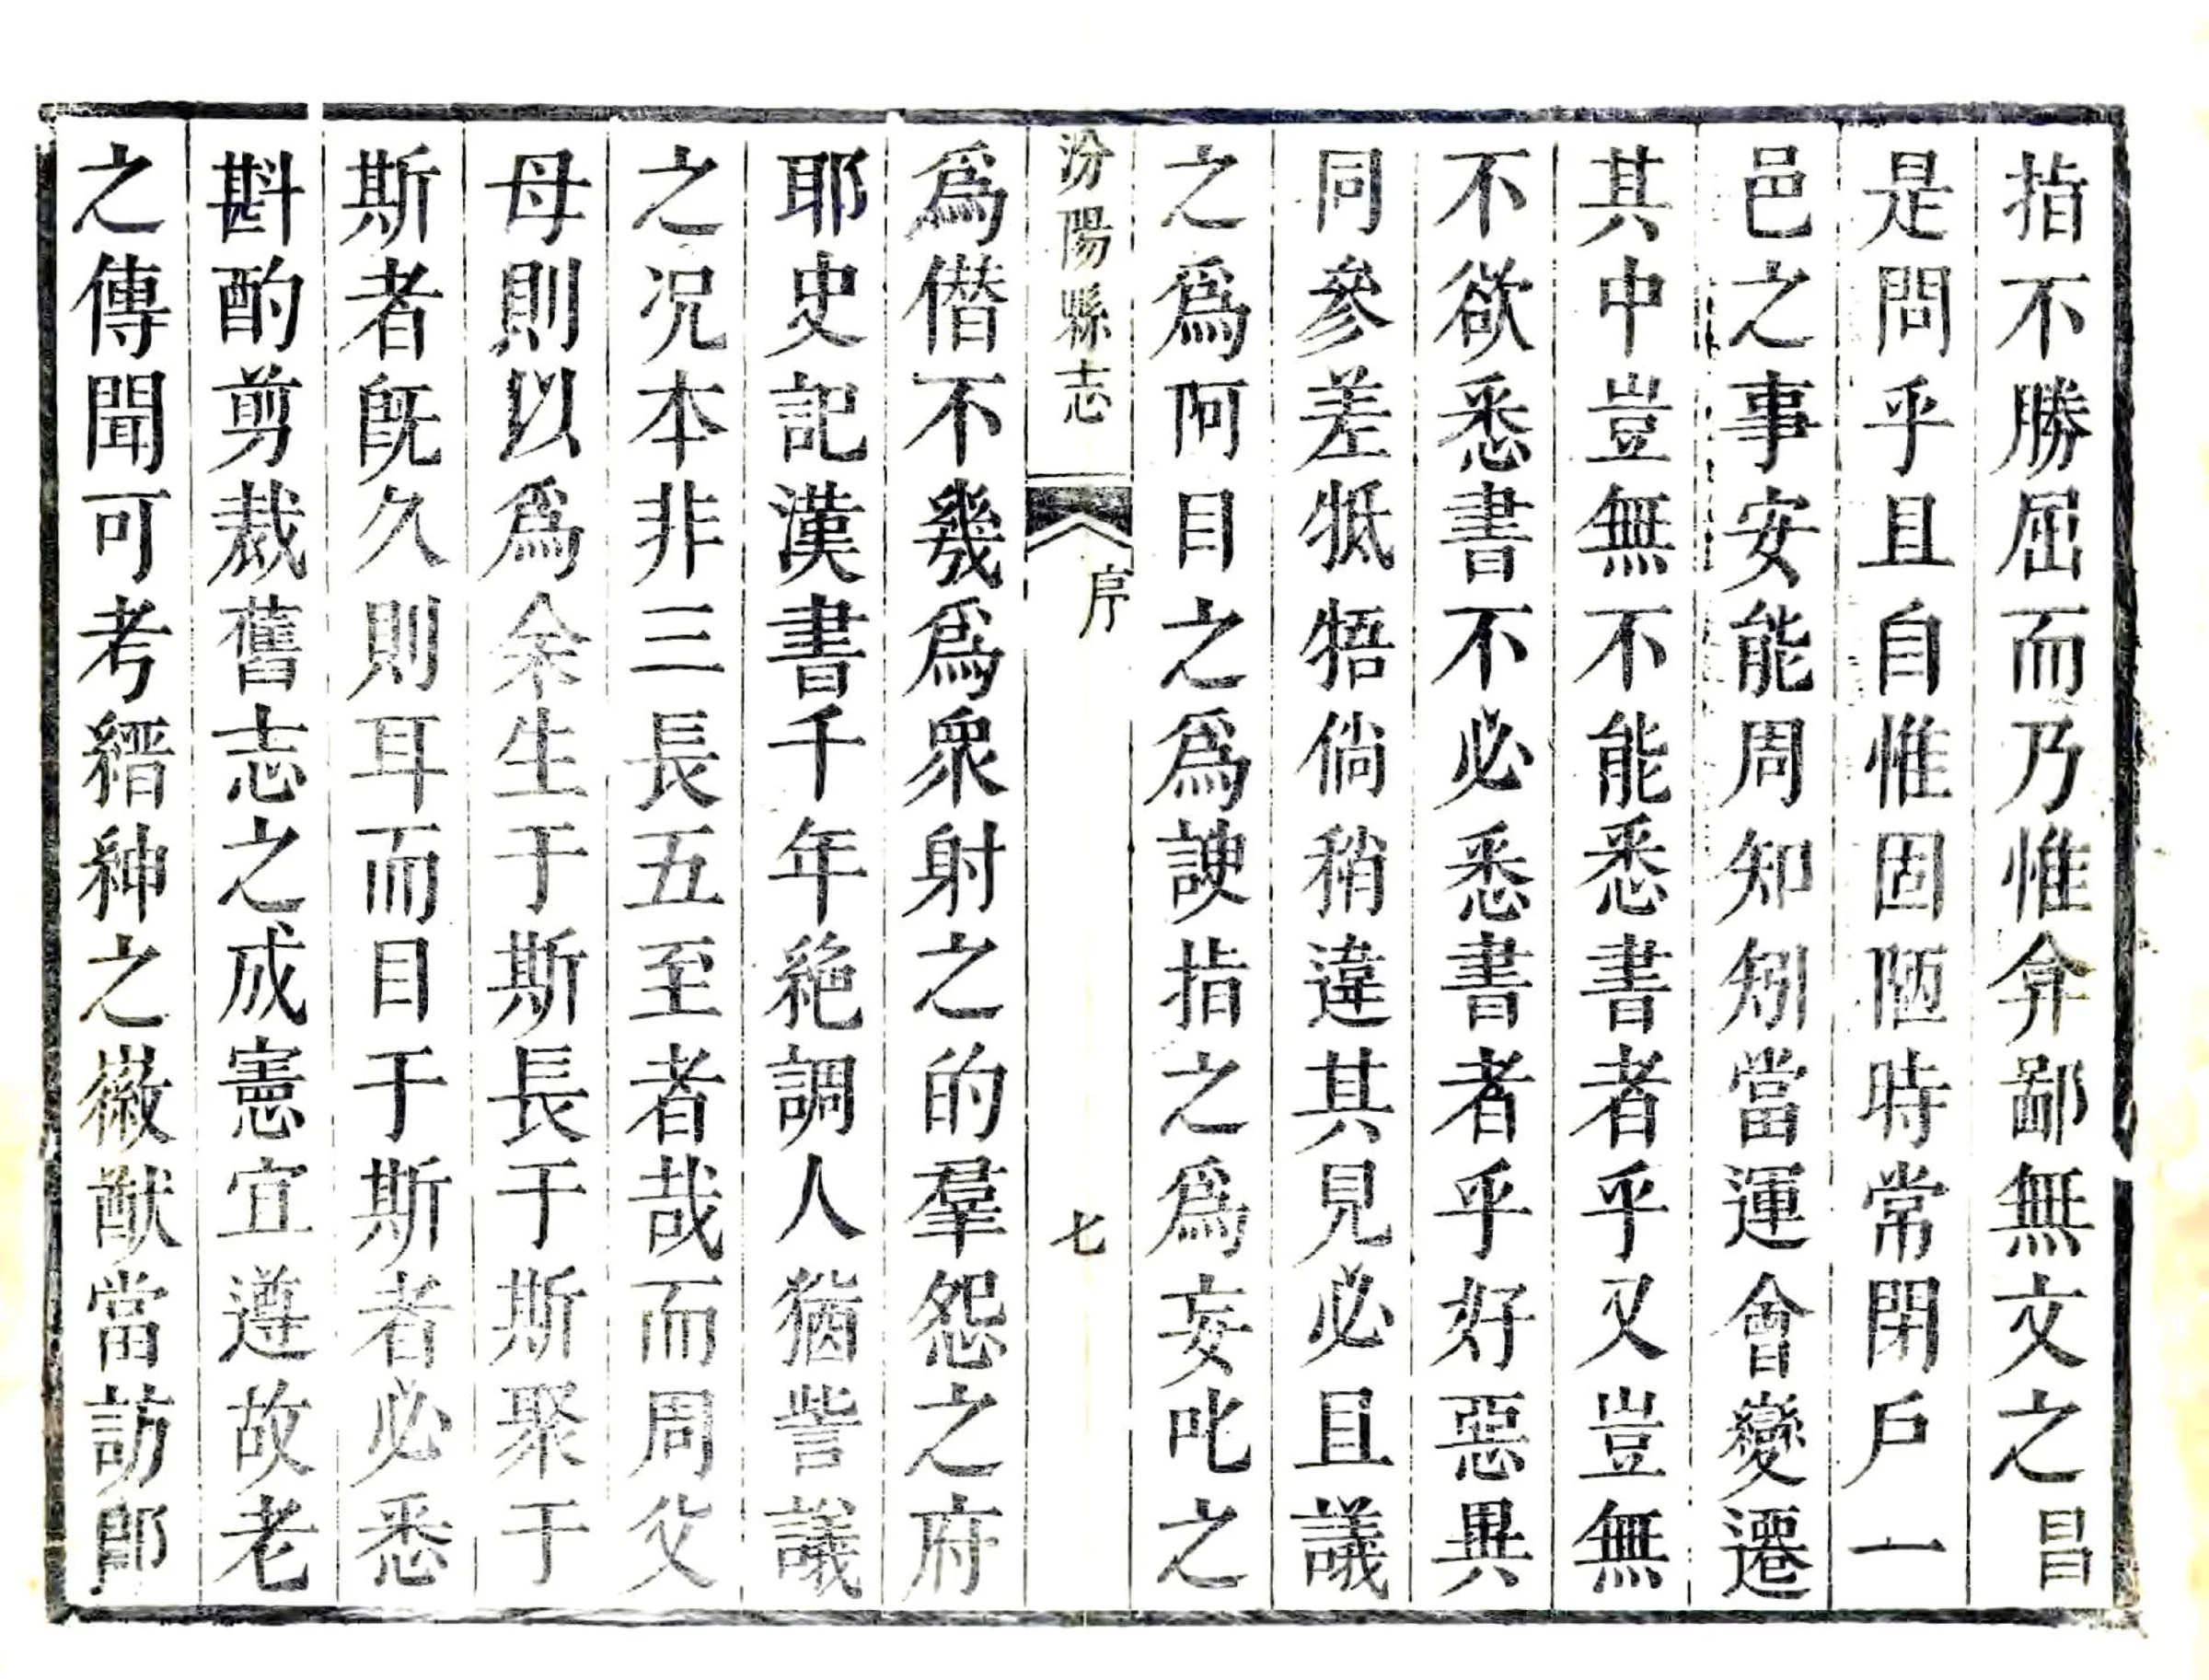 指不勝屈而乃惟弇鄙無文之昌
是問乎且自惟固陋時常閉戶一
邑之事安能周知矧當運會變遷
其中豈無不能悉書者乎又豈無
不欲悉書不必悉書者乎好惡異
同參差牴牾倘稍違其見必且議
之爲阿目之爲諛指之爲妄叱之
汾陽縣志
序
七
爲僭不幾爲衆射之的羣怨之府
耶史記漢書千年絶調人猶訾議
之況本非三長五至者哉而周父
母則以爲余生于斯長于斯聚于
斯者旣久則耳而目于斯者必悉
斟酌剪裁舊志之成憲宜遵故老
之傳聞可考縉紳之徽猷當訪郎